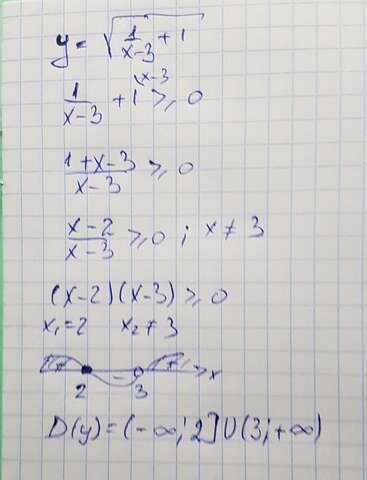 y = √(1/(x-3) + 1)
1/(x-3) + 1 \x-3 ≥ 0
(1+x-3)/(x-3) ≥ 0
(x-2)/(x-3) ≥ 0 ; x ≠ 3
(x-2)(x-3) ≥ 0
x₁=2 x₂≠3
+ - + x
2 3
D(y) = (-∞; 2] U (3; +∞)